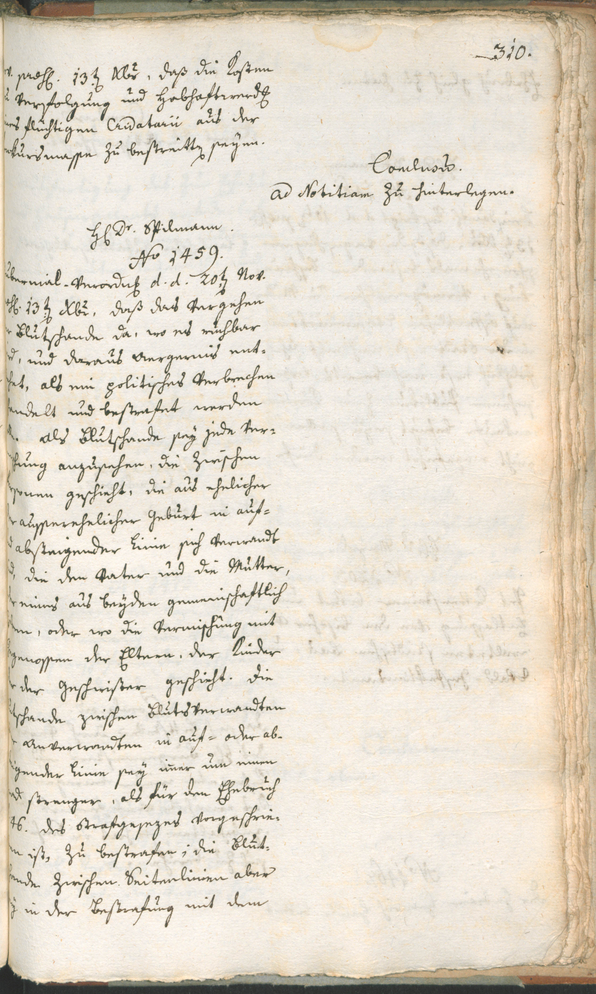 310.
präs. 13t Xbr, daß die Kosten
Verfolgung und Habhaftwerdg
flüchtigen Cridatarii aus der
kursmasse zu bestreitten seyen.
Conclusum.
ad Notitiam zu hinterlegen.
H Dr. Spilmann.
No 1459.
bernial-Verordng d. d. 20t Nov.
13t Xbr, daß das Vergehen
Blutschande da, wo es ruchbar
d, und daraus Aergernis ent-
het, als ein politisches Verbrechen
andelt und bestrafet werden
als Blutschande sey jede Ver-
hung anzusehen, die zwischen
sonen geschieht, die aus ehelicher
r ausserehelicher Geburt in auf-
d absteigender Linie sich verwandt
d, die den Vater und die Mutter,
r eines aus beyden gemeinschaftlich
en, oder wo die Vermischung mit
genossen der Eltern, der Kinder
r der Geschwister geschieht. Die
tschande zwischen Blutsverwandten
Anverwandten in auf- oder ab-
igender Linie sey immer um einen
d strenger, als für den Ehebruch
46. des Strafgesezes vorgeschrie-
n ist, zu bestrafen; die Blut-
ande zwischen Seitenlinien aber
y in der Bestrafung mit dem